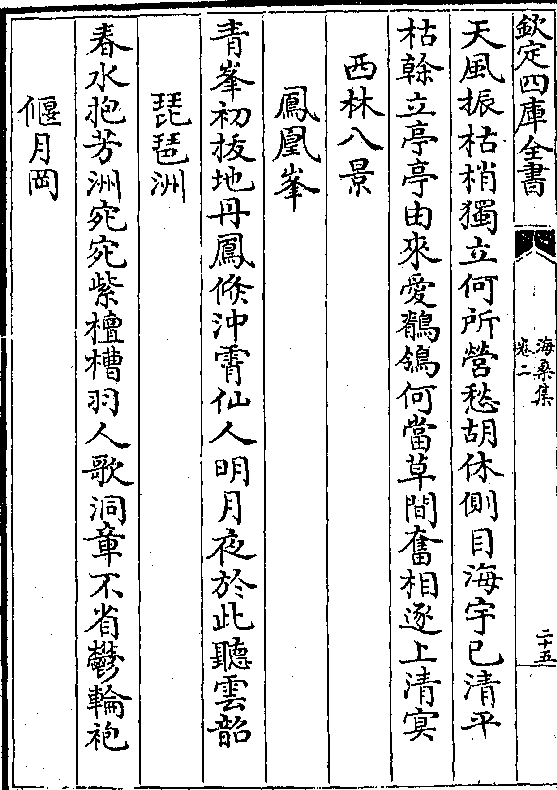 欽定四庫全書
海桑集
卷二
二十五
天風振枯梢獨立何所營愁胡休側目海宇已清平
枯榦立亭亭由來愛鶺鴒何當草間奮相逐上清㝠
西林八景
鳳凰峯
青峯初拔地丹鳳倐沖霄仙人明月夜於此聽雲韶
琵琶洲
春水抱芳洲宛宛紫檀槽羽人歌洞章不省鬱輪袍
偃月岡